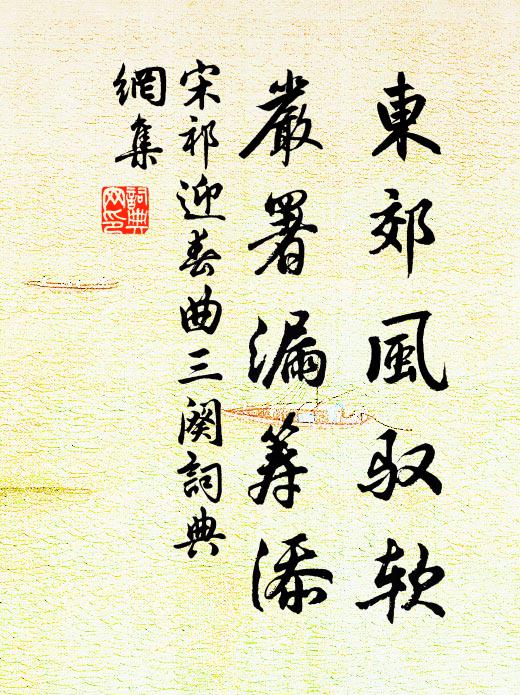 東郊風馭軟
嚴署漏筭添
宋祁迎春曲三闋詞典
網集
詞典
网印